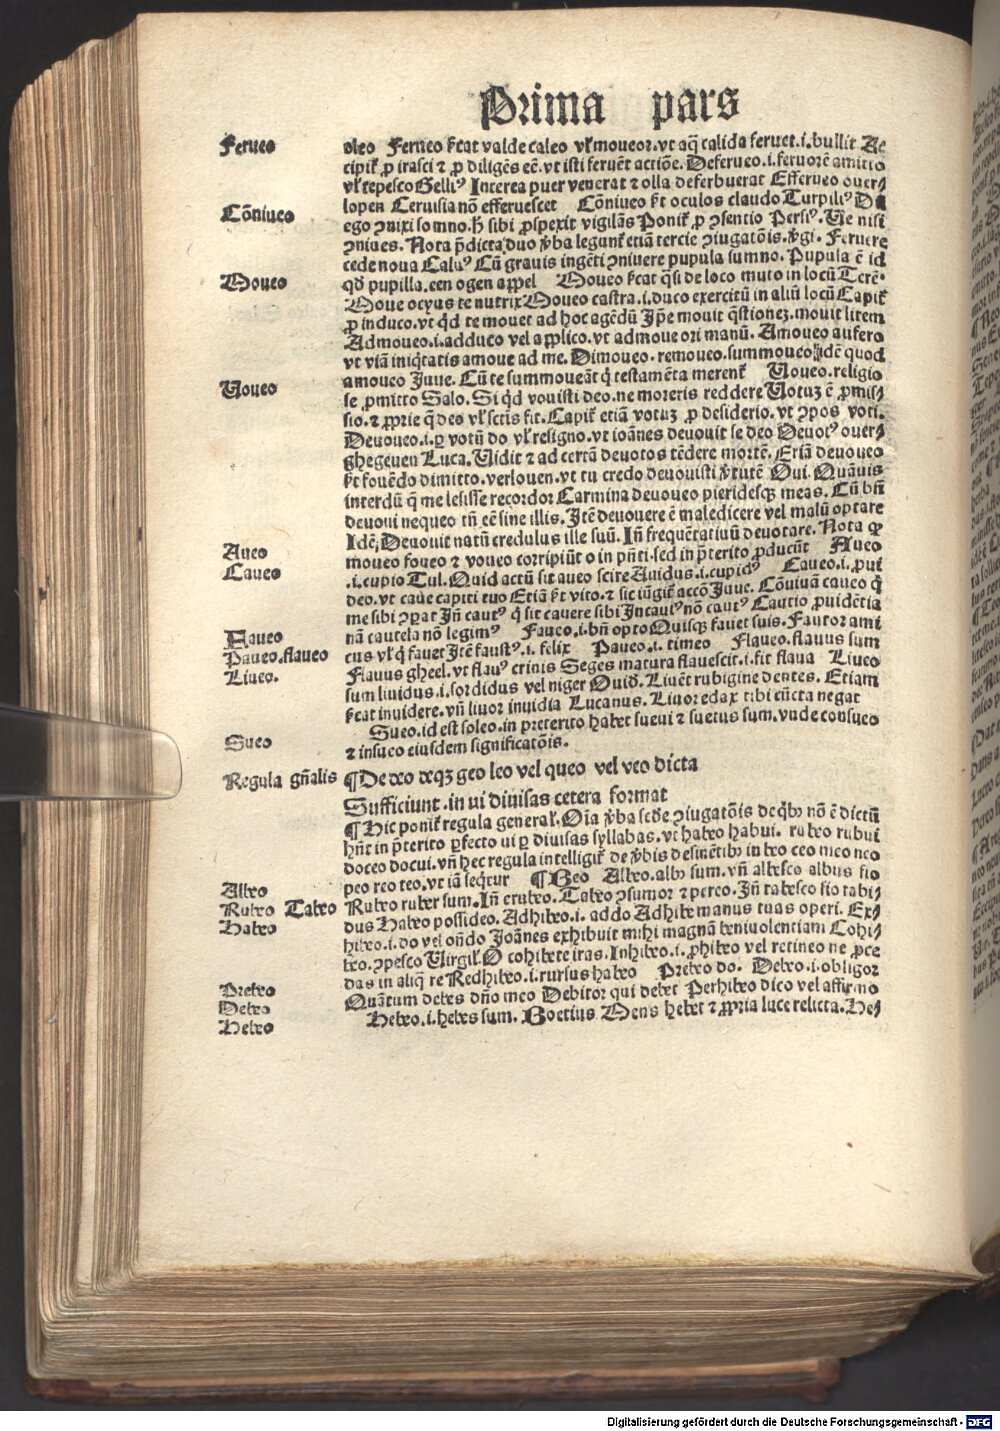 Prima pars
Ferueo
oleo Ferueo st̄cat valde caleo vl̓ moueor. vt aq̄ calida feruet. i. bullit Ac
cipit̉ ꝓ irasci ⁊ ꝓ diligēs eē. vt isti feruēt actiōe. Deferueo. i. feruorē amitto
vl̓ tepesco Gelliꝰ Interea puer venerat ⁊ olla deferbuerat Efferueo ouer/
Cōniueo
lopen Ceruisia nō efferuescet Cōniueo st̄ oculos claudo Turpiliꝰ
ego ꝯnixi somno. h̄ sibi ꝓspexit vigilās Ponit̉ ꝓ ꝯsentio Persiꝰ. Ue nisi
ꝯniues. Nota p̄dicta duo v̓ba legunt̉ etiā tercie ꝯiugatōis. v̓gi. Feruere
cede noua Caluꝰ Cū grauis ingēti ꝯníuere pupula sumno. Pupula ē id
Moueo
qd̓ pupilla. een ogen appel Moueo st̄cat q̄si de loco muto in locū Terē.
Moue ocyus te nutrix Moueo castra. i. duco exercitū in aliū locū Capit̉
ꝓ induco. vt qd̓ te mouet ad hoc agēdū Ip̄e mouit q̄stionez. mouit litem
Admoueo. i. adduco vel applico. vt admoue ori manū. Amoueo aufero
vt viā iniq̄tatis amoue ad me. Dimoueo. remoueo. summoueo idē quod
Uoueo
amoueo Juue. Cū te summoueāt q̓ testamēta merent̉ Uoueo. religio
se ꝓmitto Salo. Si qd̓ vouisti deo. ne moreris reddere Uotuz ē ꝓmis/
sio. ⁊ ꝓprie q̄ deo vl̓ sctīs fit. Capit̉ etiā votuz ꝓ desiderio. vt ꝯpos voti.
Deuoueo. i. ꝑ votū do vl̓ resigno. vt ioānes deuouit se deo Deuotꝰ ouer/
ghegeuen Luca. Uidit ⁊ ad certā deuotos tēdere mortē. Etiā deuoueo
st̄ fouēdo dimitto. verlouen. vt tu credo deuouisti v̓tutē Oui. Quāuis
interdū q̄ me lesisse recordor Carmina deuoueo pieridesqꝫ meas. Cū bn̄
deuoui nequeo tn̄ eē sine illis. Itē deuouere ē maledicere vel malū optare
Idē, Deuouit natū credulus ille suū. In̄ frequētatiuū deuotare. Nota ꝙ
Aueo
moueo foueo ⁊ voueo corripiūt o in pn̄ti. sed in p̄terito ꝓducūt Aueo
Caueo
.i. cupio Tul. Quid actū sit aueo scire Auidus. i. cupidꝰ Caueo. i. pui
deo. vt caue capiti tuo Etiā st̄ vito. ⁊ sic iūgit̉ accō Juue. Cōuiuā caueo q̓
me sibi ꝯꝑat In̄ cautꝰ q̓ sit cauere sibi Incauiꝰ nō cautꝰ Cautio ꝓuidētia
Faueo
nā cautela nō legimꝰ Faueo. i. bn̄ opto Quisqꝫ fauet suis. Fautor ami
Paueo. flaueo
cus vl̓ q̓ fauet Itē faustꝰ. i. felix Paueo. i. timeo Flaueo. flauus sum
Liueo.
Flauus gheel. vt flauꝰ crinis Seges matura flauescit. i. fit flaua Liueo
sum liuidus. i. sordidus vel niger Ouid̓. Liuēt rubigine dentes. Etiam
st̄cat inuidere. vn̄ liuor inuidia Lucanus. Liuor edax tibi cūcta negat
Sueo
Sueo. id est soleo. in preterito habet sueui ⁊ suetus sum. vnde consueo
⁊ insueo eiusdem significatōis.
Regula gn̄alis
¶De deo deqꝫ geo leo vel queo vel veo dicta
Sufficiunt. in ui diuisas cetera format
¶Hic ponit̉ regula general̓. Oīa v̓ba sedē ꝯiugatōis de qb̓ꝫ nō ē dictū
hn̄t in p̄terito ꝑfecto ui ꝑ diuisas syllabas. vt habeo habui. rubeo rubui
doceo docui. vn̄ hec regula intelligit̉ de v̓bis desinētibꝫ in beo ceo meo neo
peo reo teo. vt iā seq̄tur ¶Beo Albeo. albꝰ sum. vn̄ albesco albus fio
Albeo
Rubeo Tabeo
Rubeo ruber sum. In̄ erubeo. Tabeo ꝯsumor ⁊ pereo. In̄ tabesco fio tabi/
Habeo
dus Habeo possideo. Adhibeo. i. addo Adhibe manus tuas operi. Ex/
hibeo. i. do vel on̄do Joānes exhibuit mihi magnā beniuolentiam Cohi/
beo. ꝯpesco Uirgil̓. O cohibete iras. Inhibeo. i. ꝓhibeo vel retineo ne ꝓce
das in aliq̄ re Redhibeo. i. rursus habeo Prebeo do. Debeo. i. obligor
Prebeo
Debeo
Quātum debes dn̄o meo Debitor qui debet Perhibeo dico vel affirmo
Hebeo
Hebeo. i. hebes sum. Boetius Mens hebet ⁊ ꝓpria luce relicta. He/
Digitalisierung gefördert durch die Deutsche Forschungsgemeinschaft - DFG